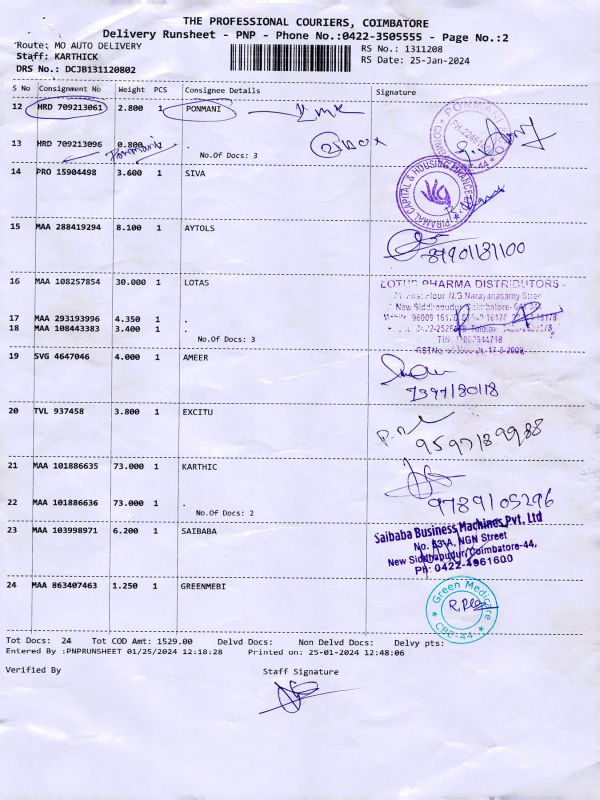 THE PROFESSIONAL COURIERS, COIMBATORE
Delivery Runsheet - PNP - Phone No.:0422-3505555 - Page No.:2
Route: MO AUTO DELIVERY
Staff: KARTHICK
DRS No.: DCJB131120802
RS No.: 1311208
RS Date: 25-Jan-2024
S No Consignment No Weight PCS Consignee Details Signature
12 HRD 709213061 2.800 1 PONMANI
13 HRD 709213096 0.800 1 .
Ponmani
No.Of Docs: 3
14 PRO 15904498 3.600 1 SIVA
PIRAMAL CAPITAL & HOUSING FINANCE
15 MAA 288419294 8.100 1 AYTOLS
16 MAA 108257854 30.000 1 LOTAS
LOTUS PHARMA DISTRIBUTORS -
17 MAA 293193996 4.350 1 .
18 MAA 108443383 3.400 1 .
No.Of Docs: 3
19 SVG 4647046 4.000 1 AMEER
7397180118
20 TVL 937458 3.800 1 EXCITU
9597189988
21 MAA 101886635 73.000 1 KARTHIC
22 MAA 101886636 73.000 1 .
No.Of Docs: 2
9789105296
23 MAA 103998971 6.200 1 SAIBABA
Saibaba Business Machines Pvt. Ltd
NGN Street
New Siddhapudur, Coimbatore-44,
Ph: 0422-4961600
24 MAA 863407463 1.250 1 GREENMEBI
Green Medicare
CBE-44
Tot Docs: 24 Tot COD Amt: 1529.00 Delvd Docs: Non Delvd Docs: Delvy pts:
Entered By :PNPRUNSHEET 01/25/2024 12:18:28 Printed on: 25-01-2024 12:48:06
Verified By Staff Signature